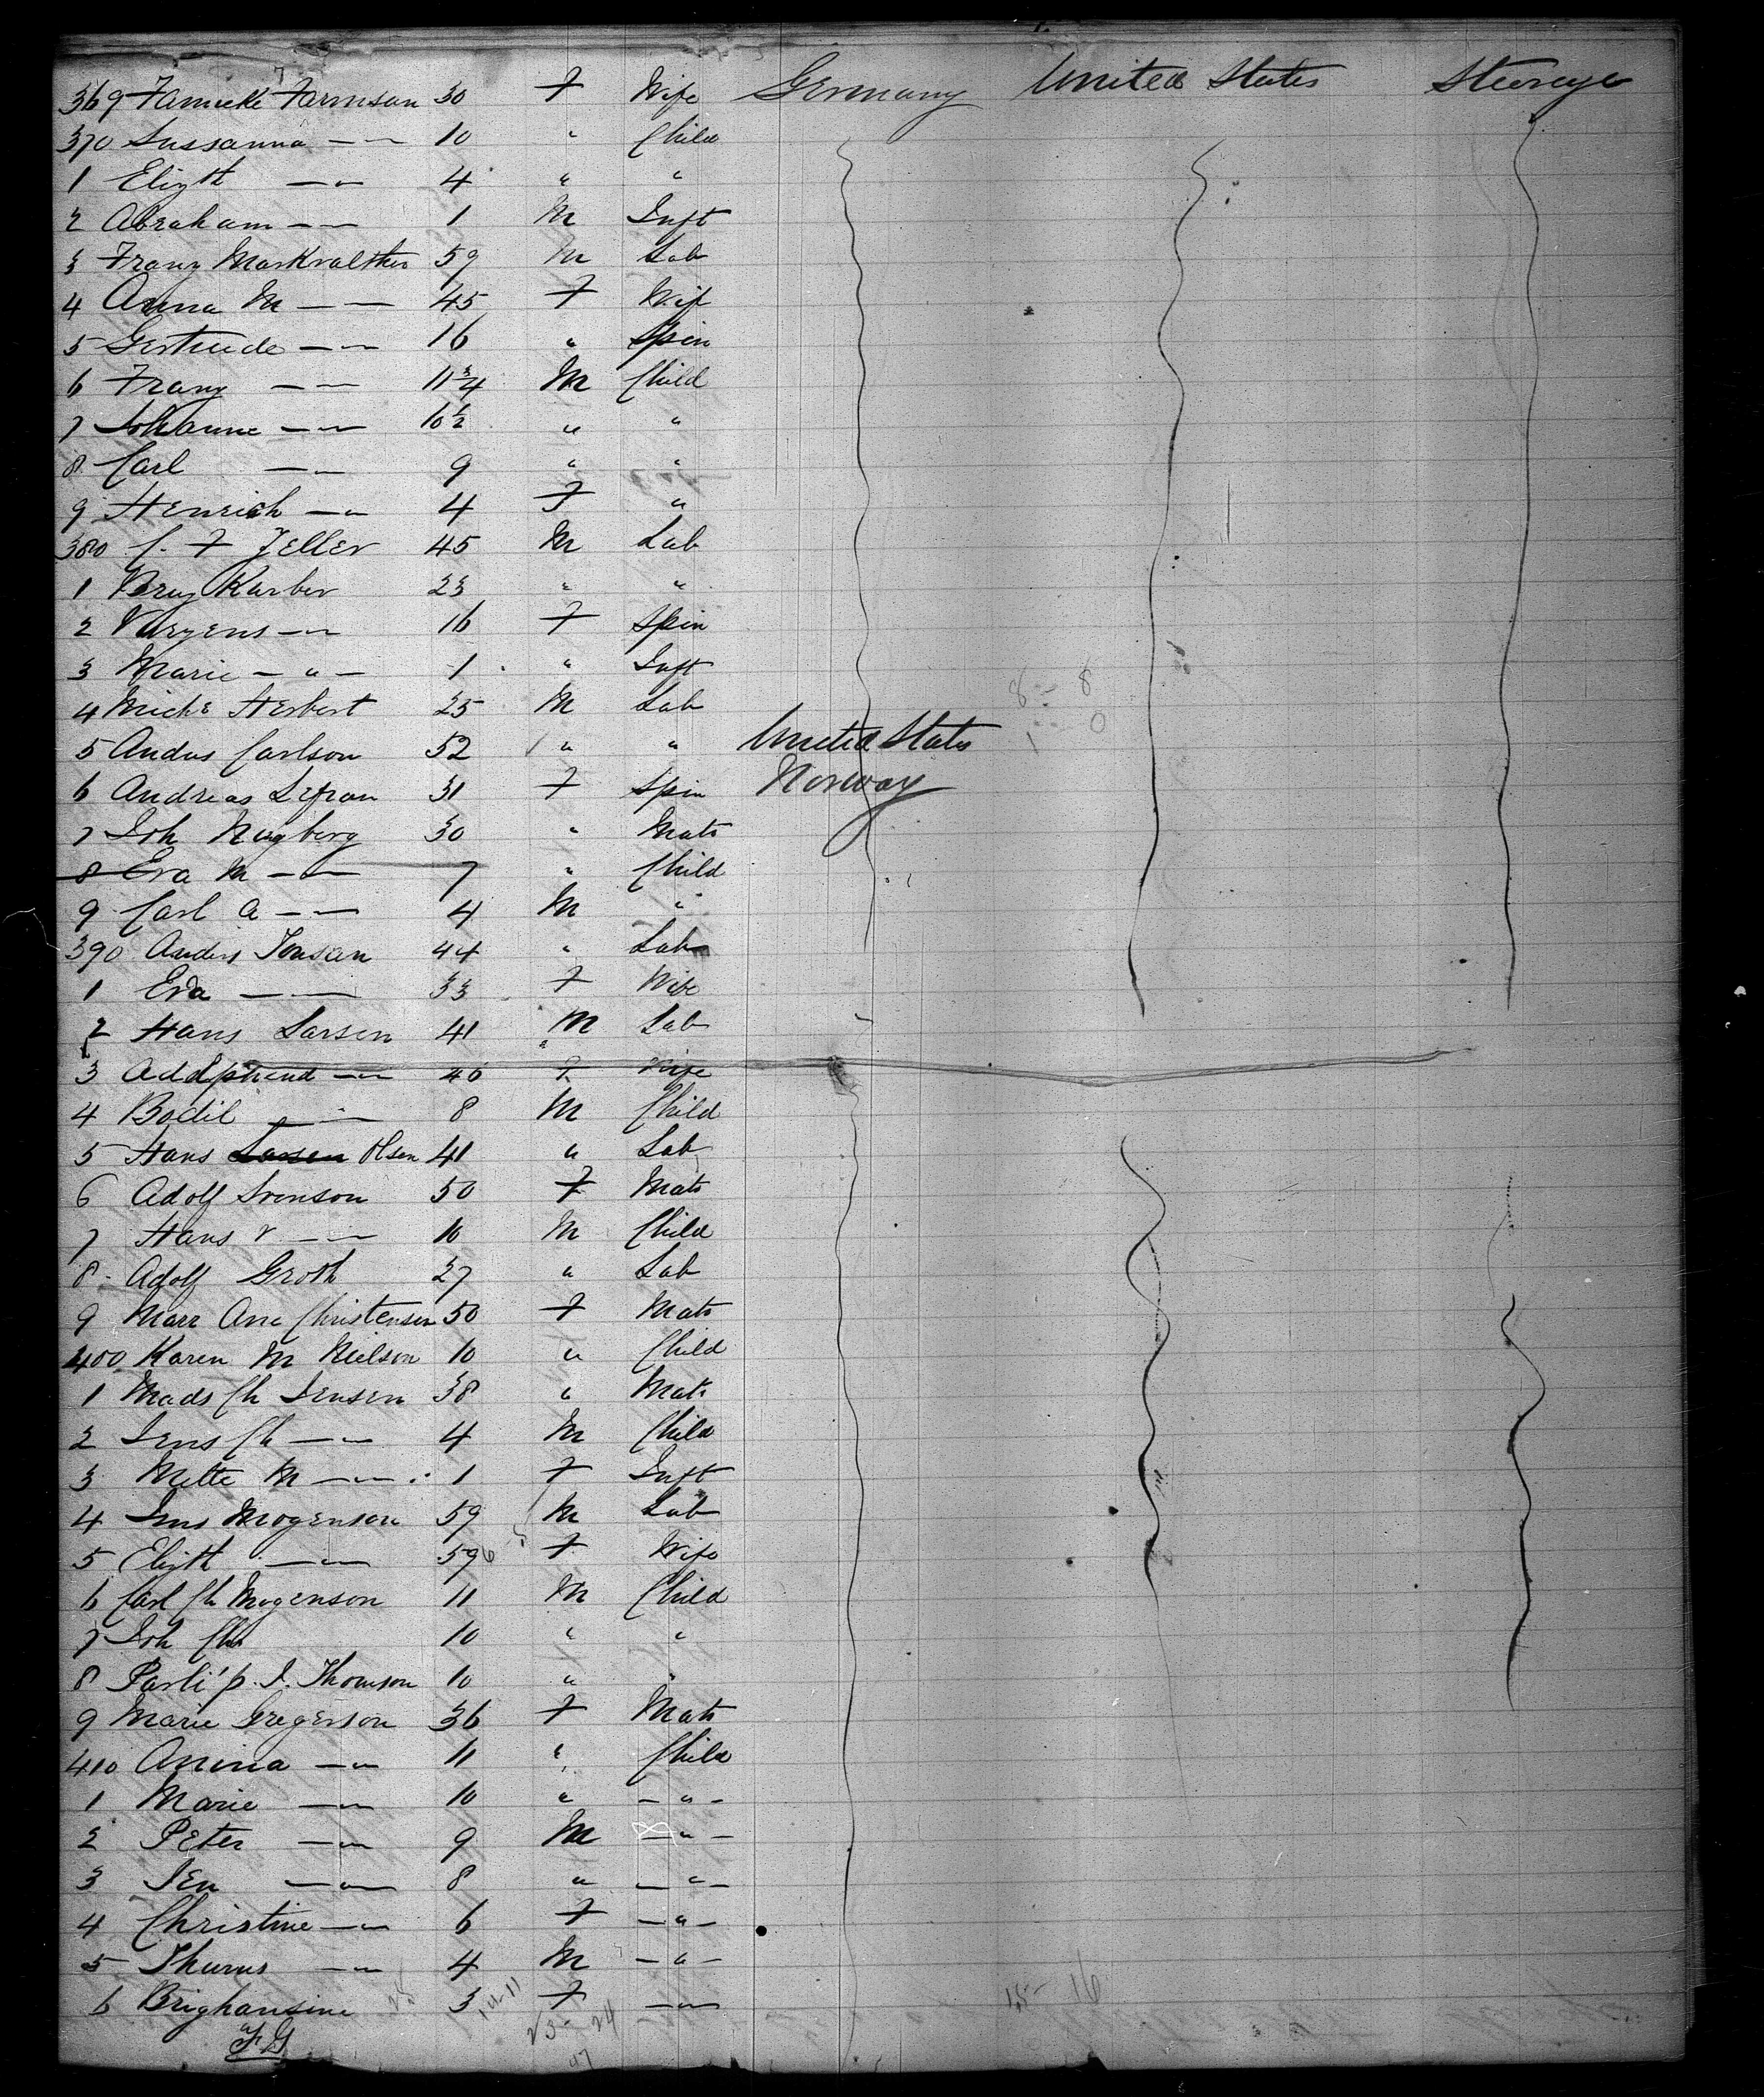 369 Famicke Farmsan 30 F Wife Germany United States Steerage
370 Sussanna — " — 10 " Child
1 Elizth — " — 4 " "
2 Abraham — " — 1 M Inft
3 Franz Markvalther 59 M Lab
4 Anna M — " — 45 F Wife
5 Gertrude — " — 16 " Spin
6 Franz — " — 11 3/4 M Child
7 Johanne — " — 10 1/2 " "
8 Carl — " — 9 " "
9 Henrich — " — 4 F "
380 C. F Zeller 45 M Lab
1 Benj Karber 23 " "
2 — " — 16 F Spin
3 Marie — " — 1 " Inft
4 Herbert 25 M Lab
5 Andus Carlson 52 " " United States
6 Andreas 31 F Spin Norway
7 Joh Nugberg 30 " Mats
8 Eva M — " — 7 " Child
9 Carl A — " — 4 M "
390 Anders Jonsan 44 " Lab
1 Eva — " — 33 F Wife
2 Hans Larsen 41 M Lab
3 — " — 40 F Wife
4 Bodil — " — 8 M Child
5 Hans Larsen Olsen 41 " Lab
6 Adolf Svenson 50 F Mats
7 Hans V — " — 10 M Child
8 Adolf Groth 27 " Lab
9 Marr Ane Christensen 50 F Mats
400 Karen M Nielson 10 " Child
1 Mads Ch Jensen 38 " Mats
2 Jens Ch — " — 4 M Child
3 Mette M — " — 1 F Inft
4 Jens Mogenson 59 M Lab
5 Elizth — " — 59 F Wife
6 Carl Ch Mogenson 11 M Child
7 Joh Chr 10 " "
8 p. J. Thomson 10 " "
9 Marie Gregerson 36 F Mats
410 Anina — " — 11 " Child
1 Marie — " — 10 " — " —
2 Peter — " — 9 M — " —
3 Jen — " — 8 " — " —
4 Christine — " — 6 F — " —
5 Thurus — " — 4 M — " —
6 Brighansine 3 F — " —